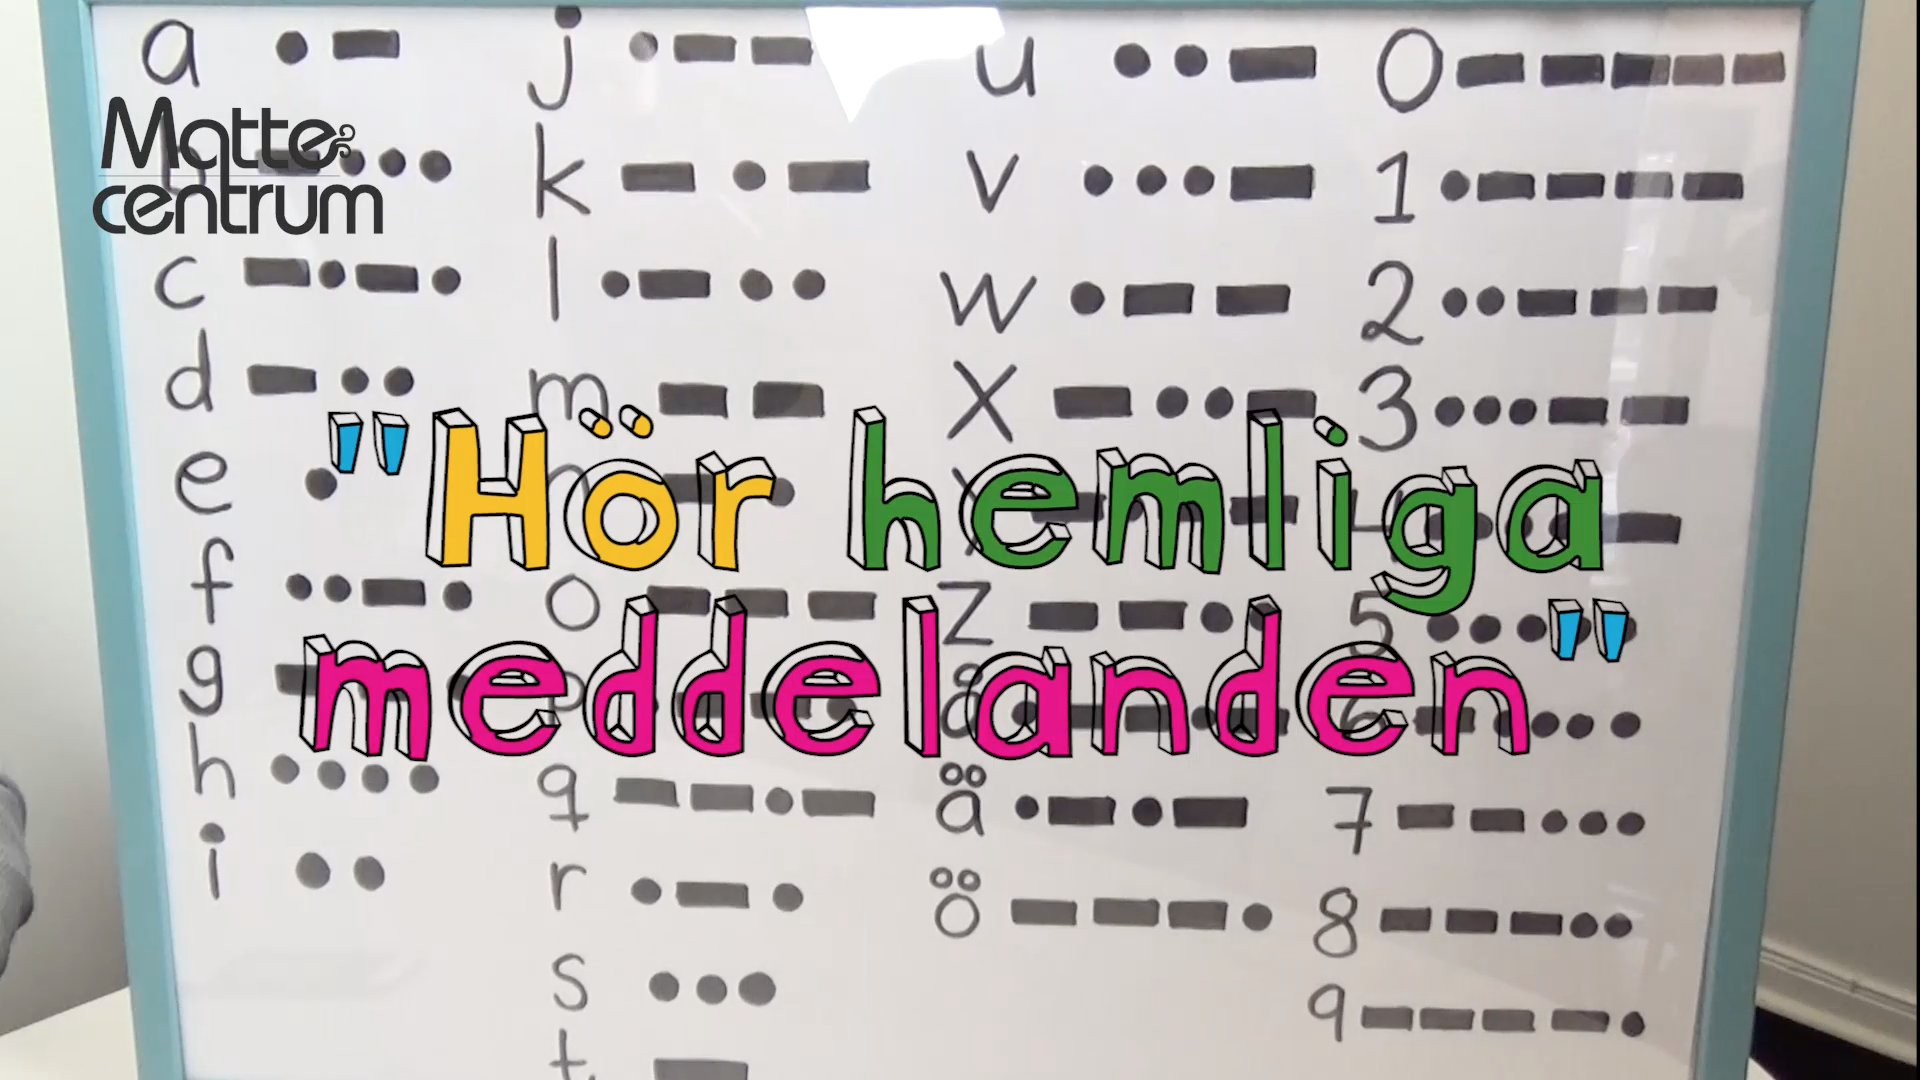 a •▬
j •▬▬
u ••▬
0 ▬▬▬▬▬
Matte
centrum
b ▬•••
k ▬•▬
v •••▬
1 •▬▬▬▬
c ▬•▬•
l •▬••
w •▬▬
2 ••▬▬▬
d ▬••
m ▬▬
x ▬••▬
3 •••▬▬
e •
"Hör hemliga
meddelanden"
f ••▬•
o ▬▬▬
z ▬▬••
5 •••••
g
h ••••
q ▬▬•▬
ä •▬•▬
7 ▬▬•••
i ••
r •▬•
ö ▬▬▬•
8 ▬▬▬••
s •••
9 ▬▬▬▬•
t ▬